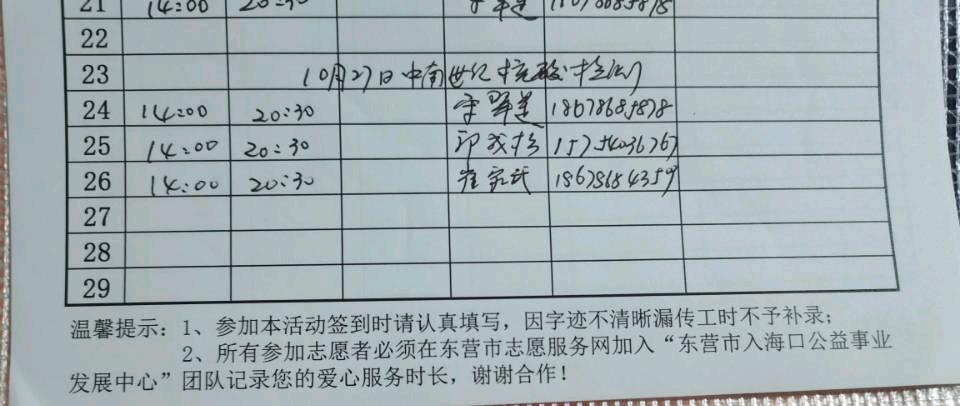 21 14:00 20:30
22
23 10月27日中南世纪核酸检测
24 14:00 20:30 18678685878
25 14:00 20:30 15754036767
26 14:00 20:30 崔家武 18678684359
27
28
29
温馨提示：1、参加本活动签到时请认真填写，因字迹不清晰漏传工时不予补录；
2、所有参加志愿者必须在东营市志愿服务网加入“东营市入海口公益事业
发展中心”团队记录您的爱心服务时长，谢谢合作！